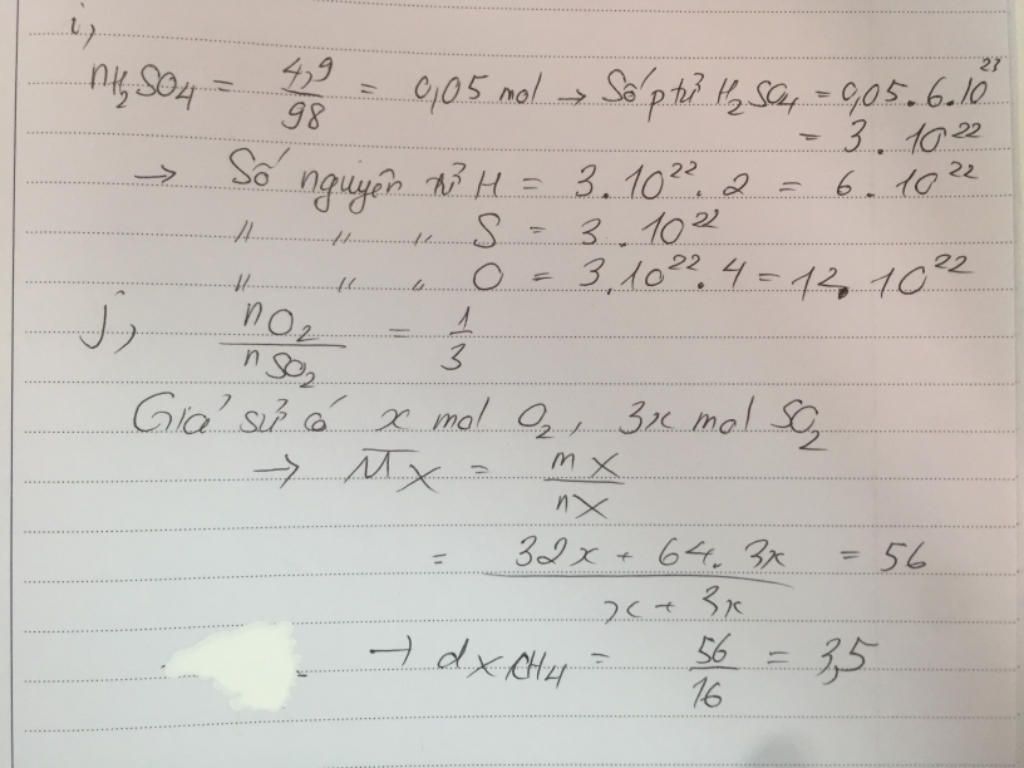 i,)
nH₂SO₄ = 4,9/98 = 0,05 mol → Số ptử H₂SO₄ = 0,05.6.10²³
= 3.10²²
→ Số nguyên tử H = 3.10²².2 = 6.10²²
" " " S = 3.10²²
" " " O = 3.10²².4 = 12.10²²
j,) nO₂/nSO₂ = 1/3
Giả sử có x mol O₂, 3x mol SO₂
→ M̅X = mX/nX
= (32x + 64.3x)/(x + 3x) = 56
→ dX/CH₄ = 56/16 = 3,5